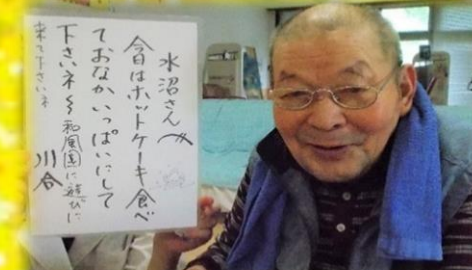 水沼さんへ
今日はホットケーキ食べ
ておなかいっぱいにして
下さいネ～和風園に遊びに
来て下さいネ
川合